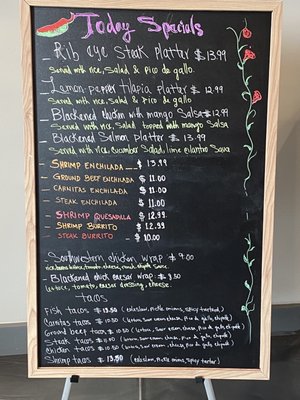 Today Specials
Rib eye Steak platter $13.99
Served with rice, Salad & Pico de gallo.
Lemon-pepper tilapia platter $12.99
Served with rice, Salad & Pico de gallo
Blackened chicken with mango Salsa $12.99
Served with rice, Salad topped with mango Salsa
Blackened Salmon Platter $13.99
Served with rice, cucumber Salad, lime cilantro Sauce
SHRIMP ENCHILADA $13.99
GROUND BEEF ENCHILADA $11.00
CARNITAS ENCHILADA $11.00
STEAK ENCHILADA $11.00
SHRIMP QUESADILLA $12.99
SHRIMP BURRITO $12.99
STEAK BURRITO $10.00
Southwestern chicken wrap $9.00
tomato, cheese,
Blackened chick caesar wrap $
lettuce, tomato, caesar dressing, cheese.
tacos
Fish tacos $13.50 (coleslaw, pickle onions, spicy tartar)
Carnitas tacos $10.50 (lettuce, sour cream, cheese, Pico de gallo, chipotle)
Ground beef tacos $10.50 (lettuce, sour cream, cheese, Pico de gallo, chipotle)
Steak tacos $11.50 (lettuce, sour cream, cheese, Pico de gallo, chipotle)
Chicken tacos $10.50 (lettuce, sour cream, cheese, Pico de gallo, chipotle)
Shrimp tacos $13.50 (coleslaw, pickle onions, spicy tartar)